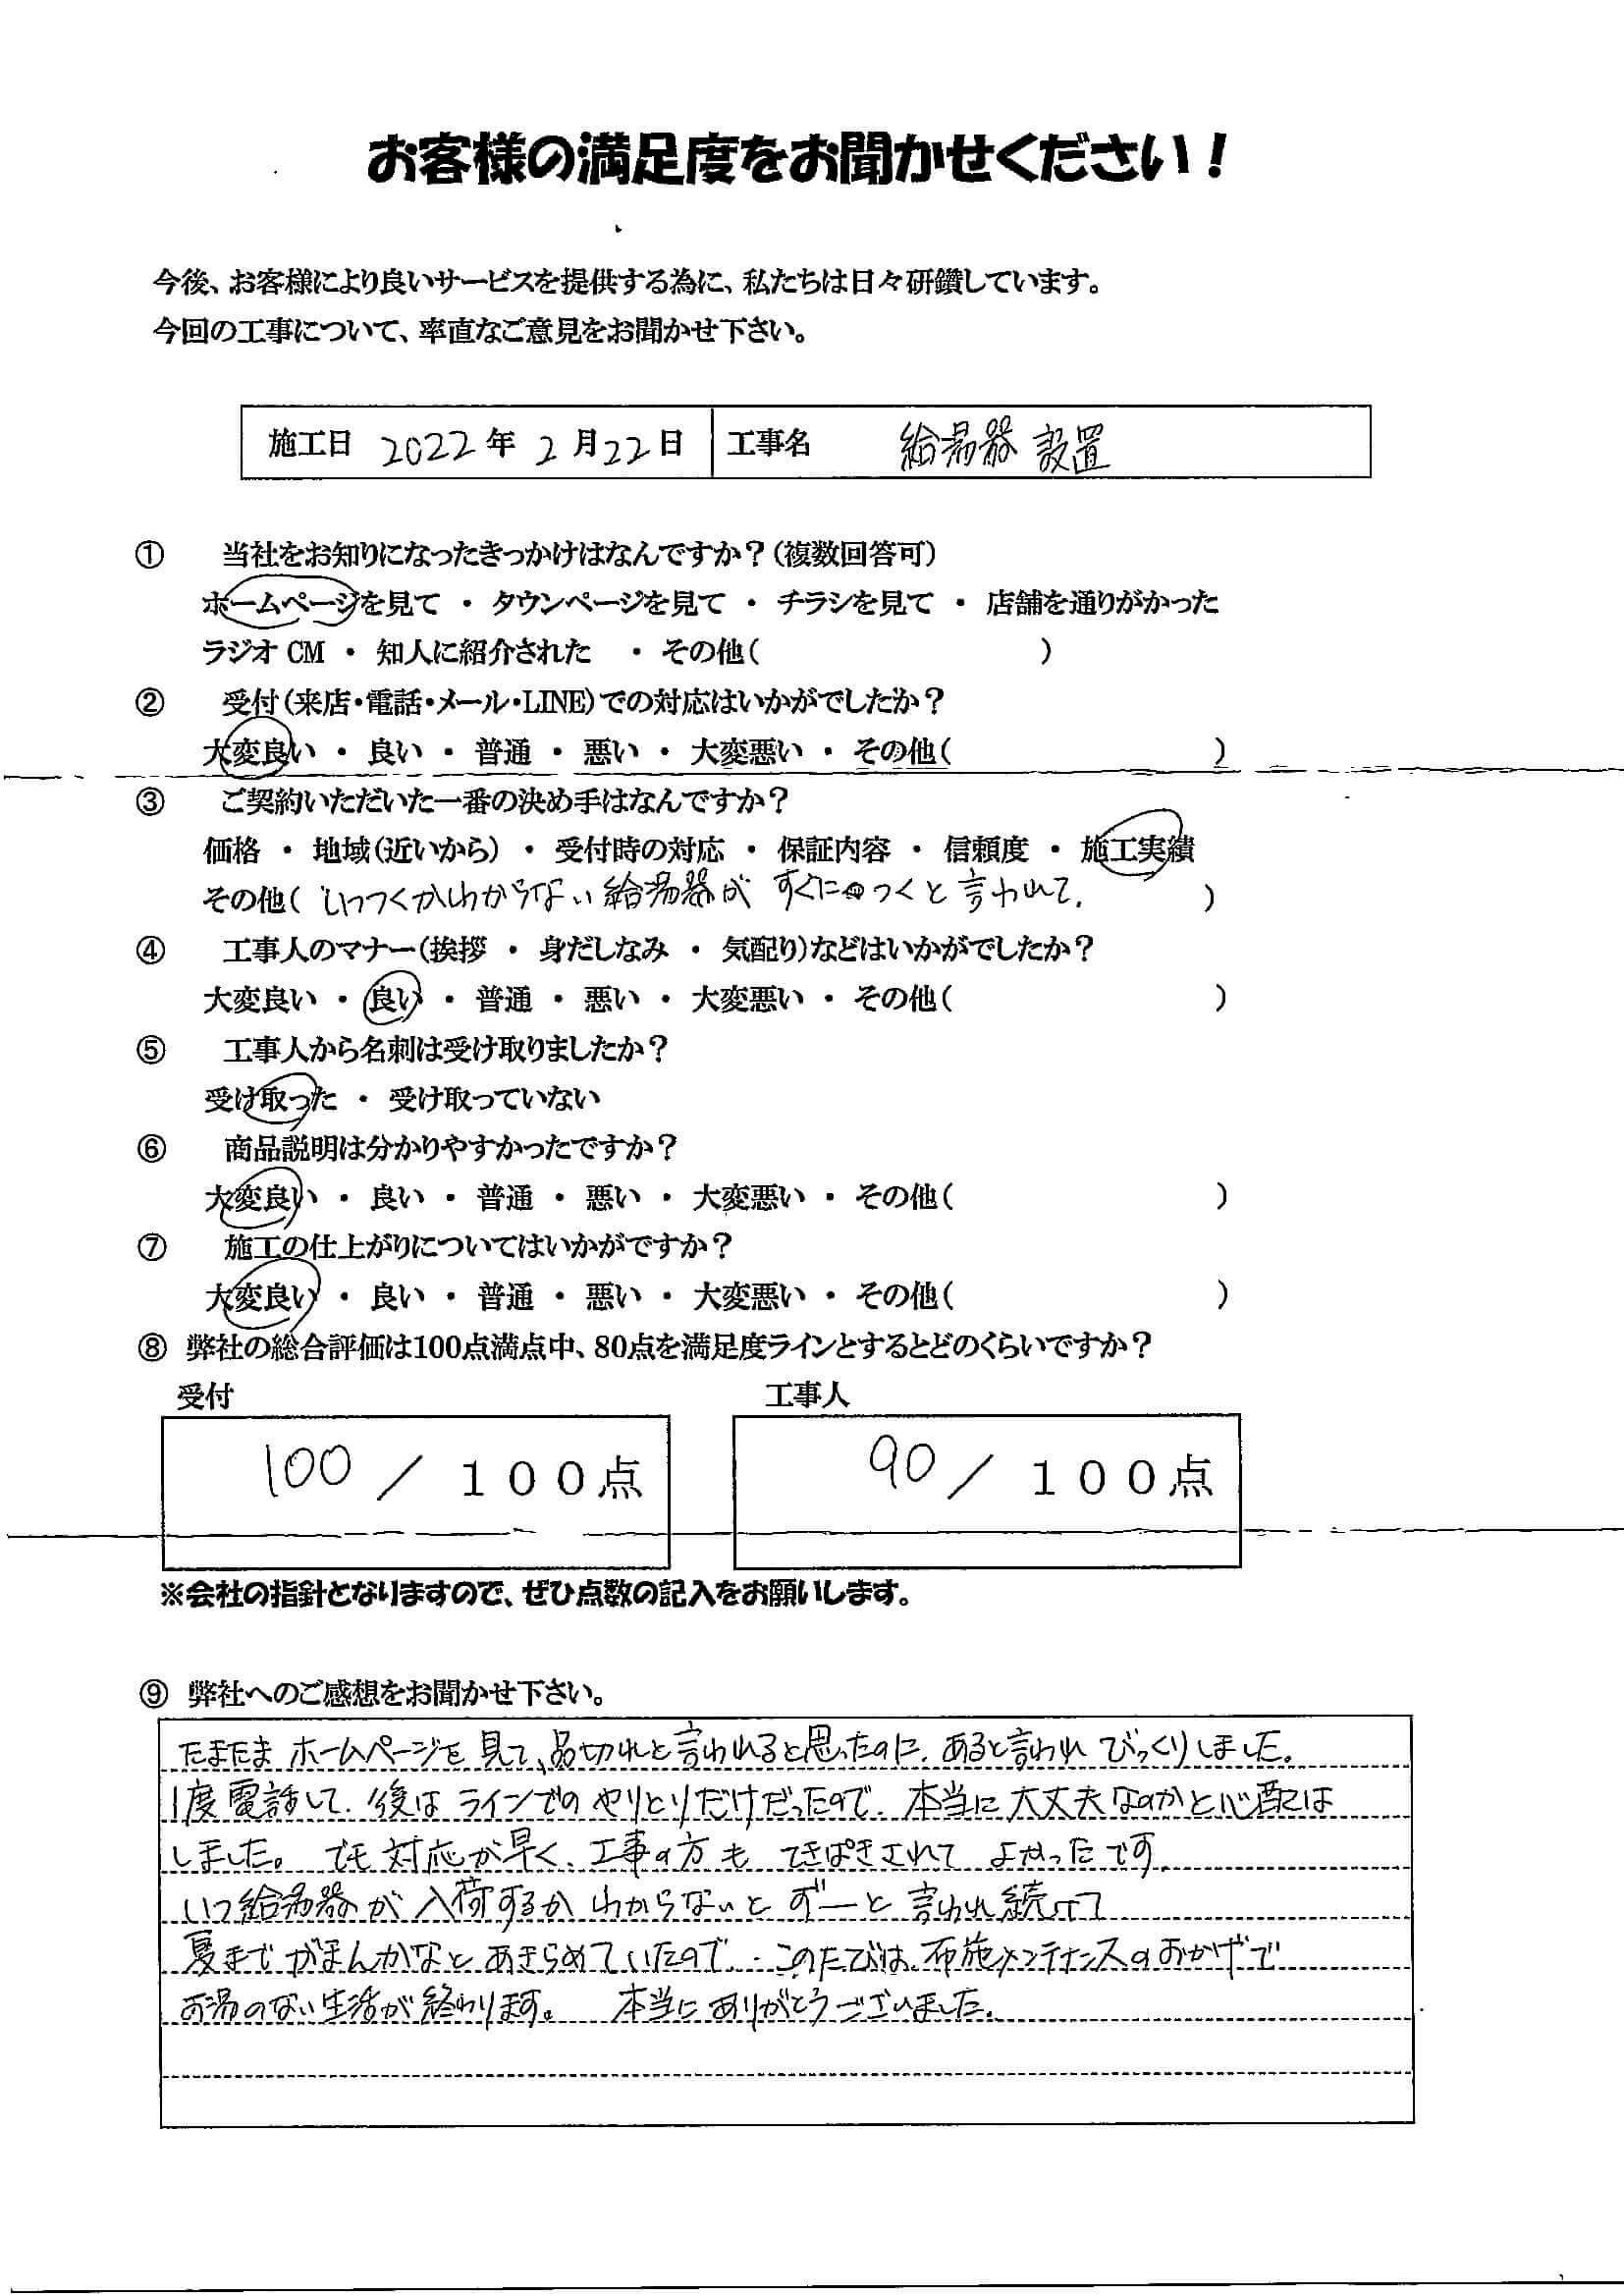 お客様の満足度をお聞かせください！
今後、お客様により良いサービスを提供する為に、私たちは日々研鑽しています。
今回の工事について、率直なご意見をお聞かせ下さい。
施工日 2022年 2月22日 工事名 給湯器 設置
① 当社をお知りになったきっかけはなんですか？（複数回答可）
ホームページを見て ・ タウンページを見て ・ チラシを見て ・ 店舗を通りがかった
ラジオ CM ・ 知人に紹介された ・ その他（ ）
② 受付（来店・電話・メール・LINE）での対応はいかがでしたか？
大変良い ・ 良い ・ 普通 ・ 悪い ・ 大変悪い ・ その他（ ）
③ ご契約いただいた一番の決め手はなんですか？
価格 ・ 地域（近いから） ・ 受付時の対応 ・ 保証内容 ・ 信頼度 ・ 施工実績
その他（ いつつくかわからない給湯器が すぐにつくと言われて. ）
④ 工事人のマナー（挨拶 ・ 身だしなみ ・ 気配り）などはいかがでしたか？
大変良い ・ 良い ・ 普通 ・ 悪い ・ 大変悪い ・ その他（ ）
⑤ 工事人から名刺は受け取りましたか？
受け取った ・ 受け取っていない
⑥ 商品説明は分かりやすかったですか？
大変良い ・ 良い ・ 普通 ・ 悪い ・ 大変悪い ・ その他（ ）
⑦ 施工の仕上がりについてはいかがですか？
大変良い ・ 良い ・ 普通 ・ 悪い ・ 大変悪い ・ その他（ ）
⑧ 弊社の総合評価は100点満点中、80点を満足度ラインとするとどのくらいですか？
受付 工事人
100 ／ １００点 90 ／ １００点
※会社の指針となりますので、ぜひ点数の記入をお願いします。
⑨ 弊社へのご感想をお聞かせ下さい。
たまたま ホームページを 見て、品切れと言われると思ったのに、あると言われ びっくりしました。
1度電話して、後は ラインでの やりとりだけだったので、本当に大丈夫なのかと心配は
しました。 でも 対応が早く、工事の方も てきぱきされて よかったです。
いつ給湯器が 入荷するか わからないと ずーと 言われ続けて
夏まで がまんかなと あきらめていたので、このたびは、布施メンテナンスのおかげで
お湯のない生活が終わります。 本当にありがとうございました。